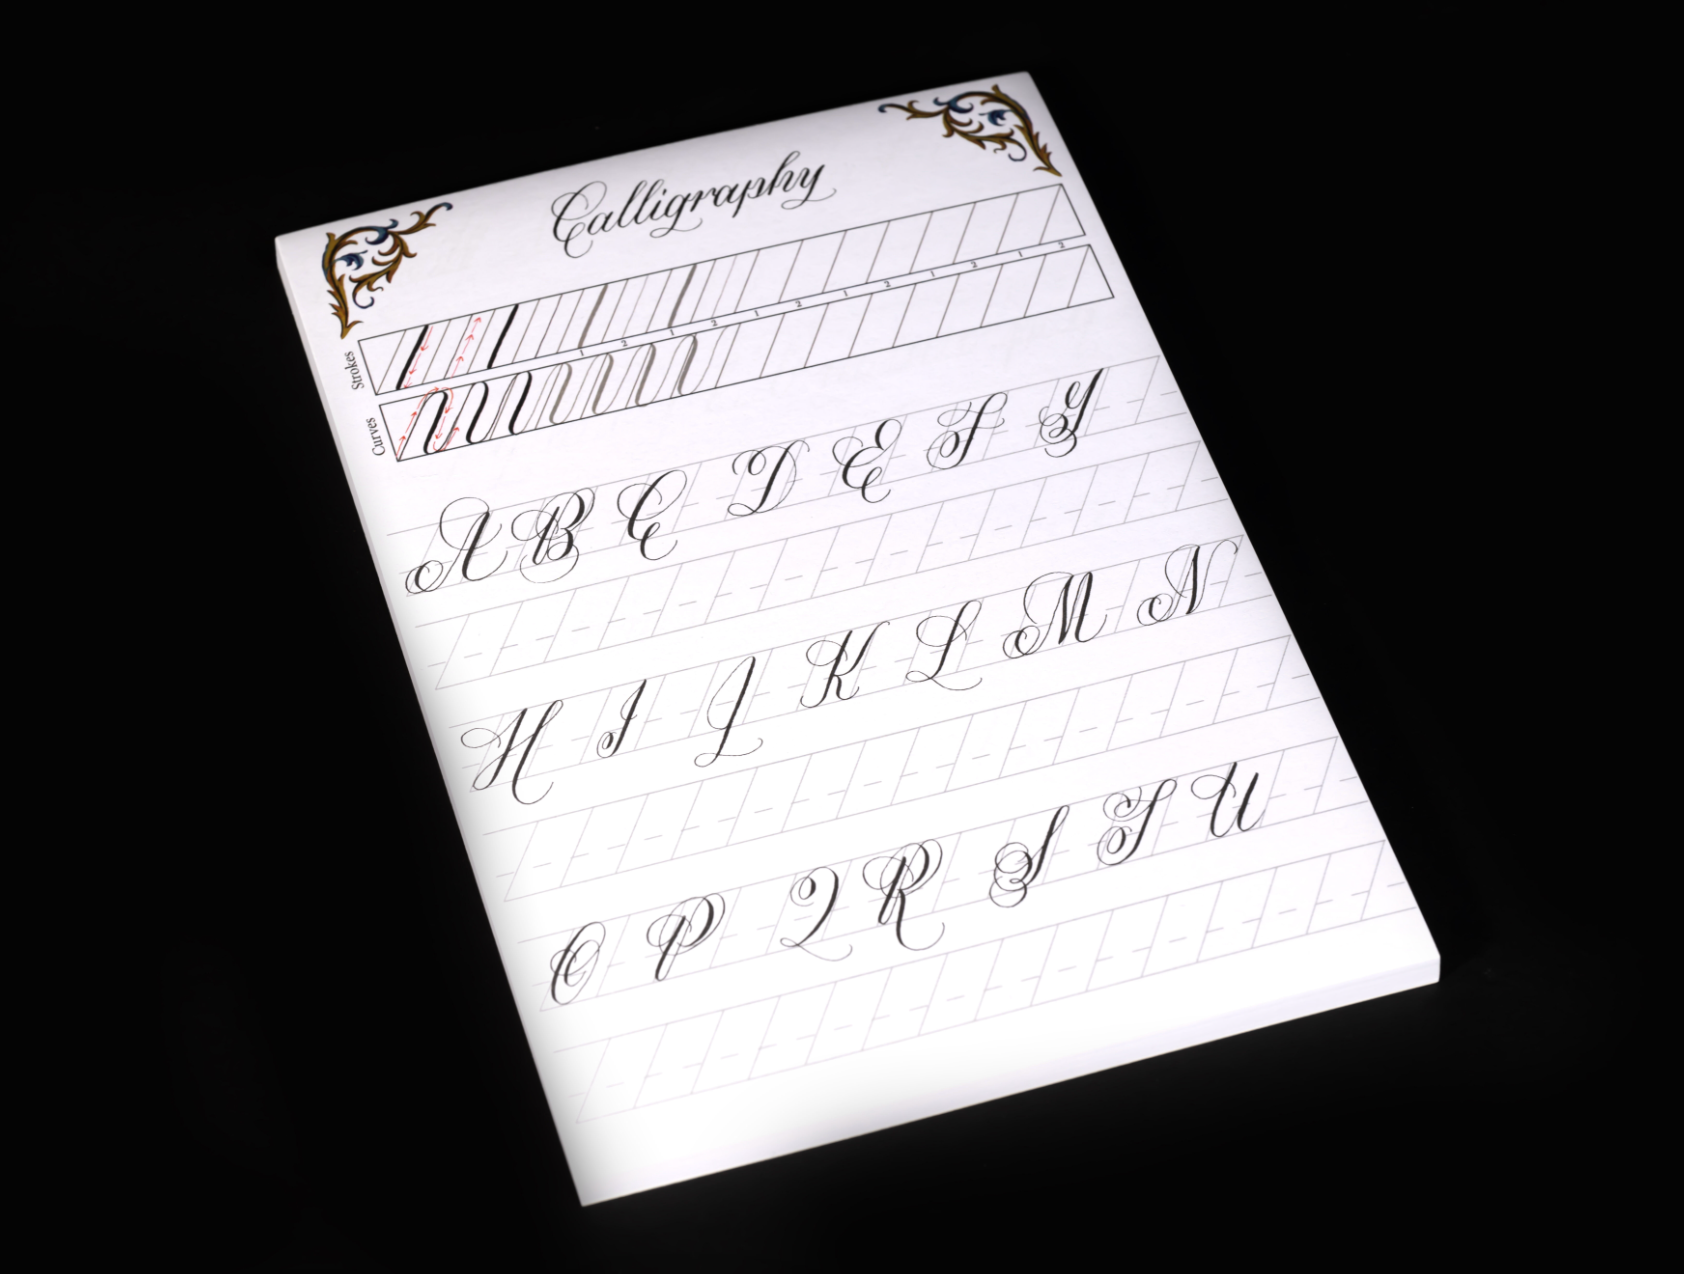 Calligraphy
Strokes
1 2 1 2 1 2 1 2 1 2
Curves
A B C D E F G
H I J K L M N
O P Q R S T U